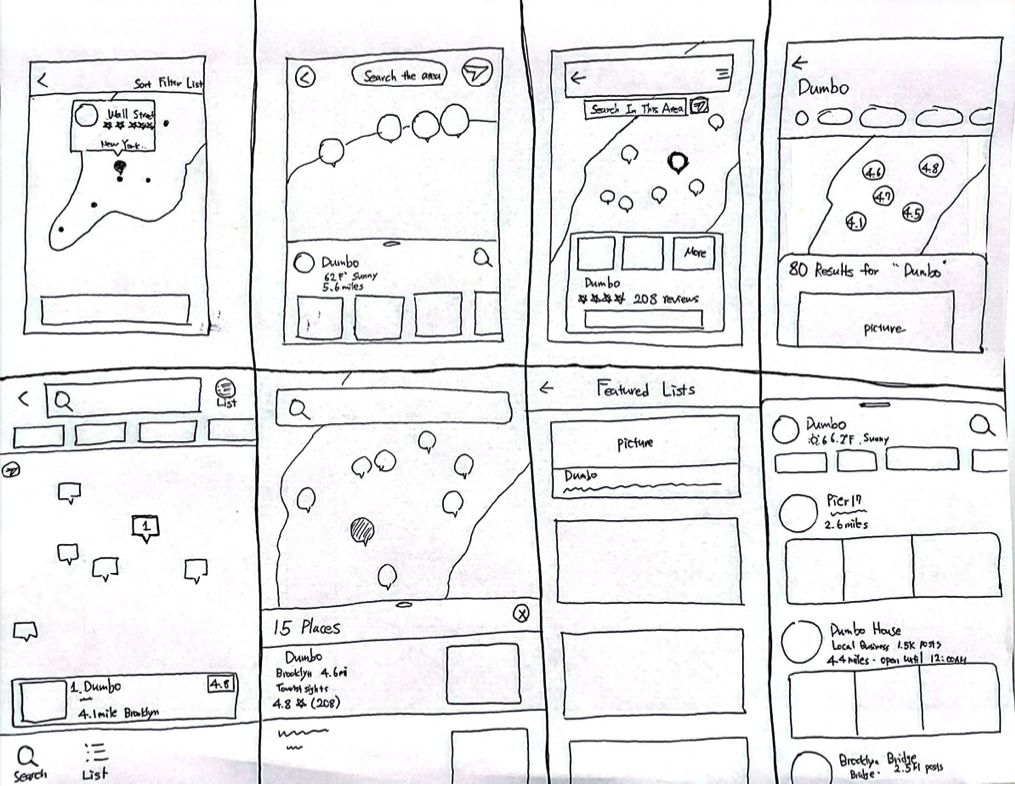 Sort Filter List
Wall Street
New York..
Search the area
Dumbo
62°F Sunny
5.6 miles
Search In This Area
More
Dumbo
208 reviews
Dumbo
4.6
4.8
4.7
4.5
4.1
80 Results for "Dumbo"
picture
List
1
1. Dumbo
4.8
4.1 mile Brooklyn
Search
List
15 Places
Dumbo
Brooklyn 4.6mi
Tourist sights
4.8 ☆ (208)
Featured Lists
picture
Dumbo
Dumbo
66.2°F. Sunny
Pier 17
2.6 miles
Dumbo House
Local Business 1.5K posts
4.4 miles · open until 12:00AM
Brooklyn Bridge
Bridge · posts